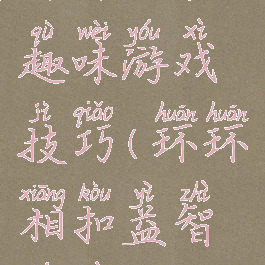 qù wèi yóu xì
趣味游戏
jì qiǎo huán huán
技巧(环环
xiāng kòu yì zhì
相扣益智